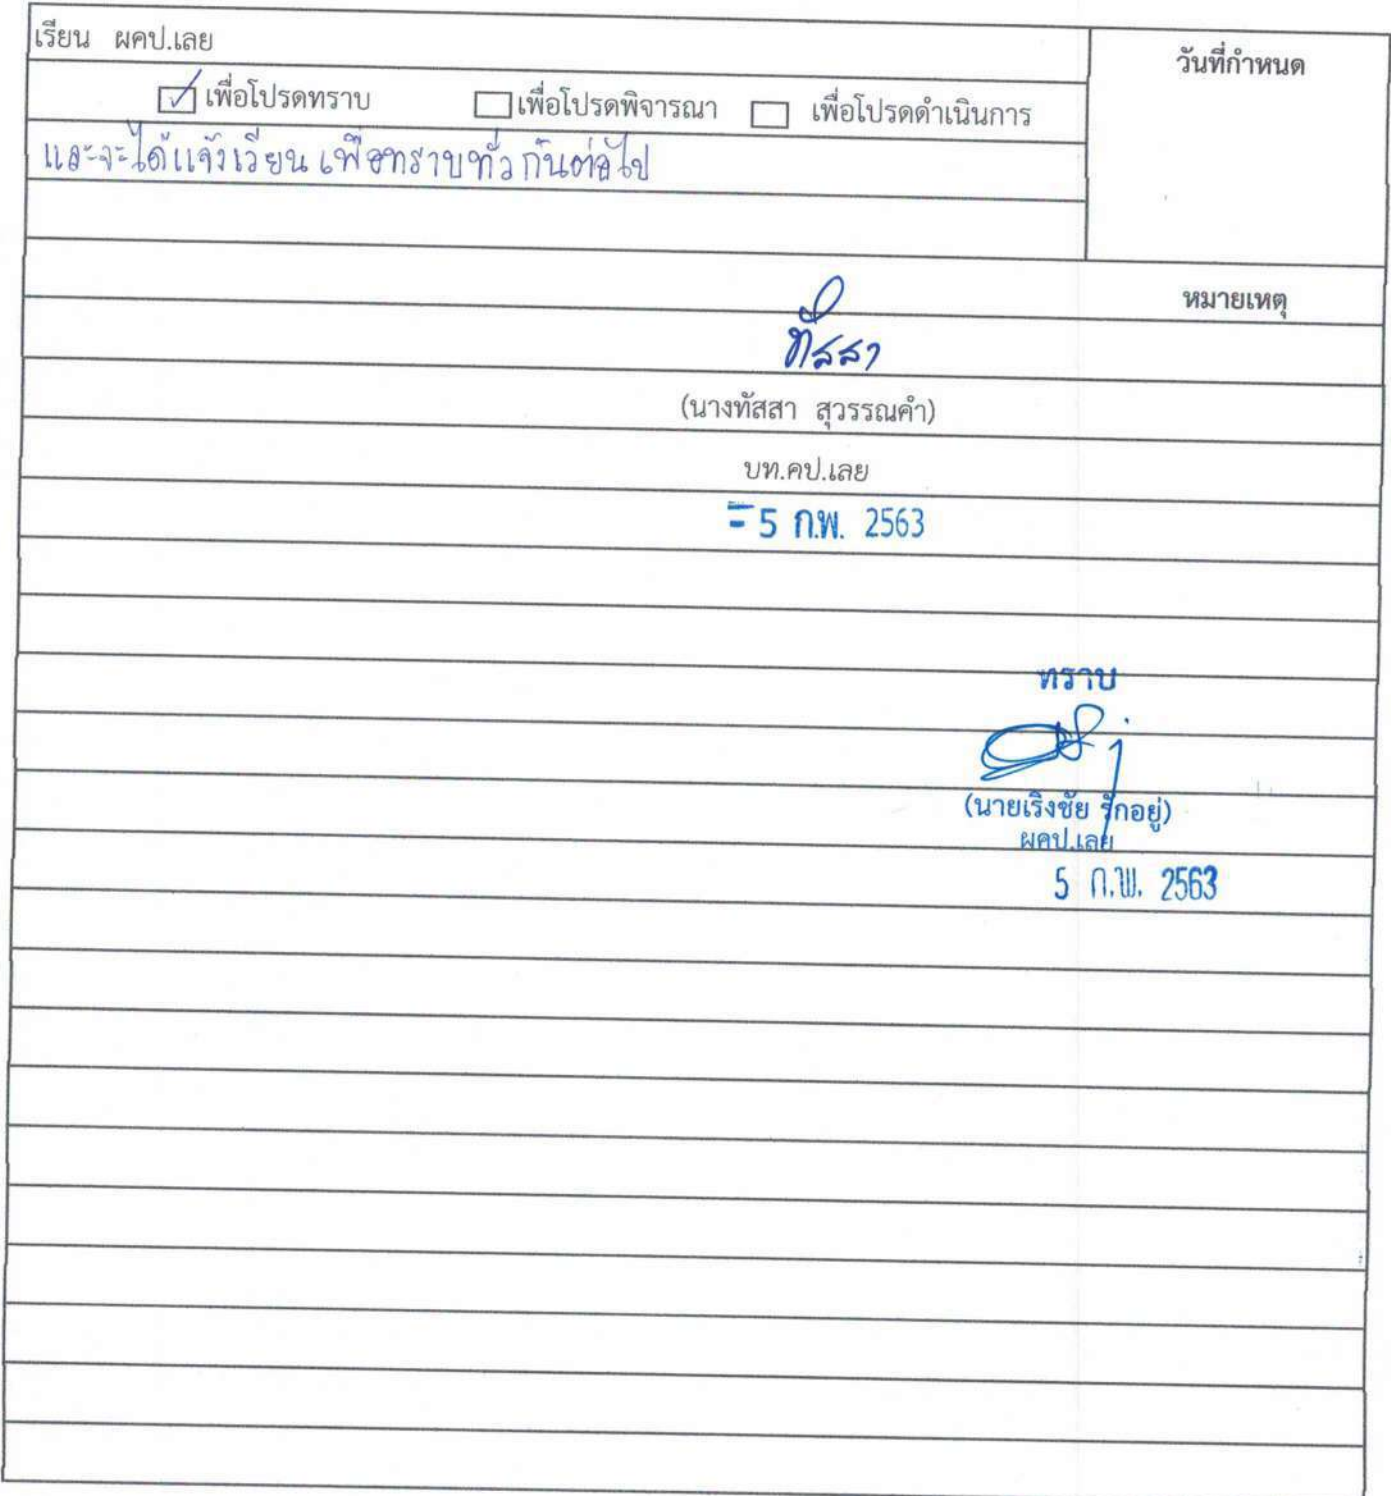 เรียน ผคป.เลย
วันที่กำหนด
เพื่อโปรดทราบ เพื่อโปรดพิจารณา เพื่อโปรดดำเนินการ
และจะได้แจ้งเวียนเพื่อทราบทั่วกันต่อไป
หมายเหตุ
ทัสสา
(นางทัสสา สุวรรณคำ)
บท.คป.เลย
- 5 ก.พ. 2563
ทราบ
(นายเริงชัย รักอยู่)
ผคป.เลย
5 ก.พ. 2563